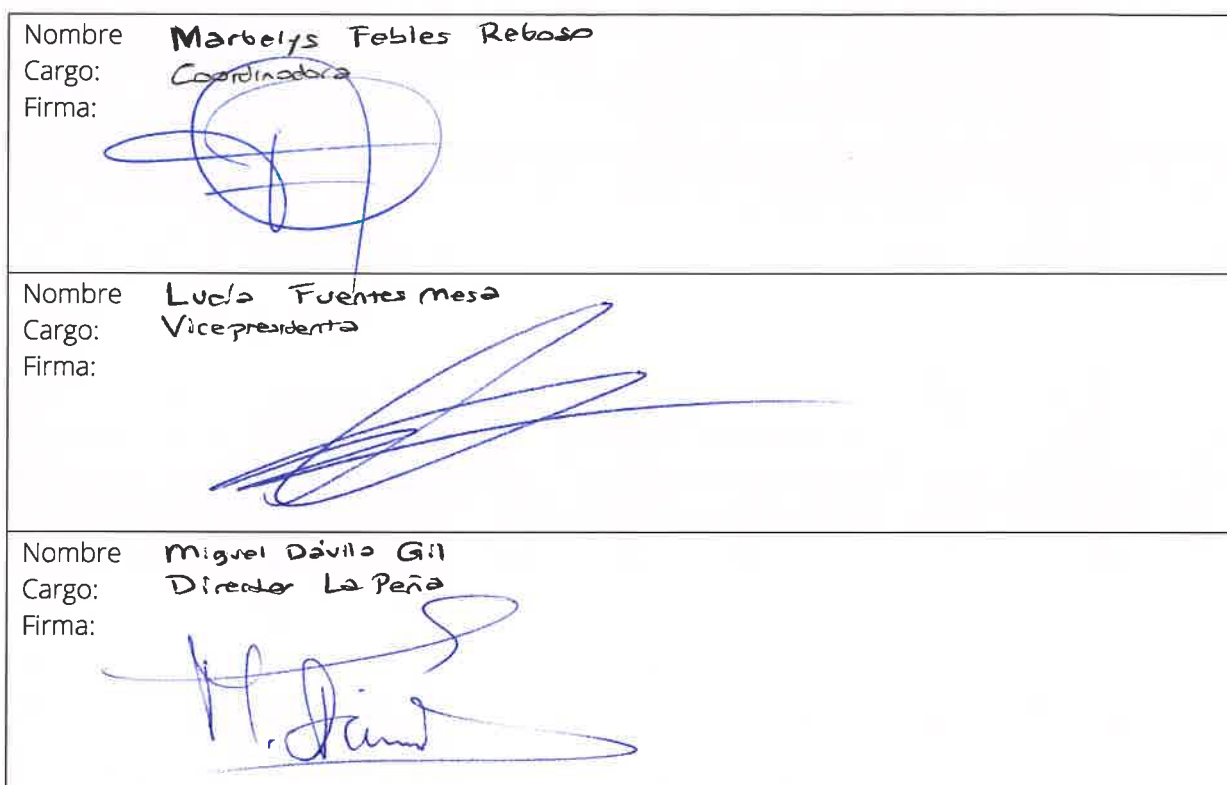 Nombre Marbelys Febles Reboso
Cargo: Coordinadora
Firma:
Nombre Lucía Fuentes Mesa
Cargo: Vicepresidenta
Firma:
Nombre Miguel Dávila Gil
Cargo: Director La Peña
Firma:
M. Dávil